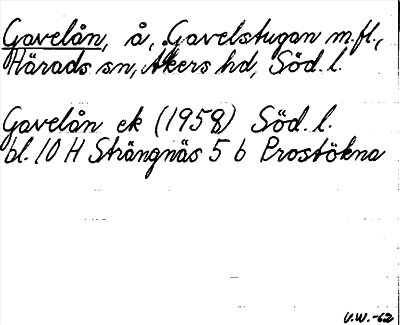 Gavelån, å, Gavelstugan m.fl.,
Härads sn, Åkers hd, Söd. l.
Gavelån ek (1958) Söd. l.
bl. 10 H Strängnäs 5 b Prostökna
V.W.-62